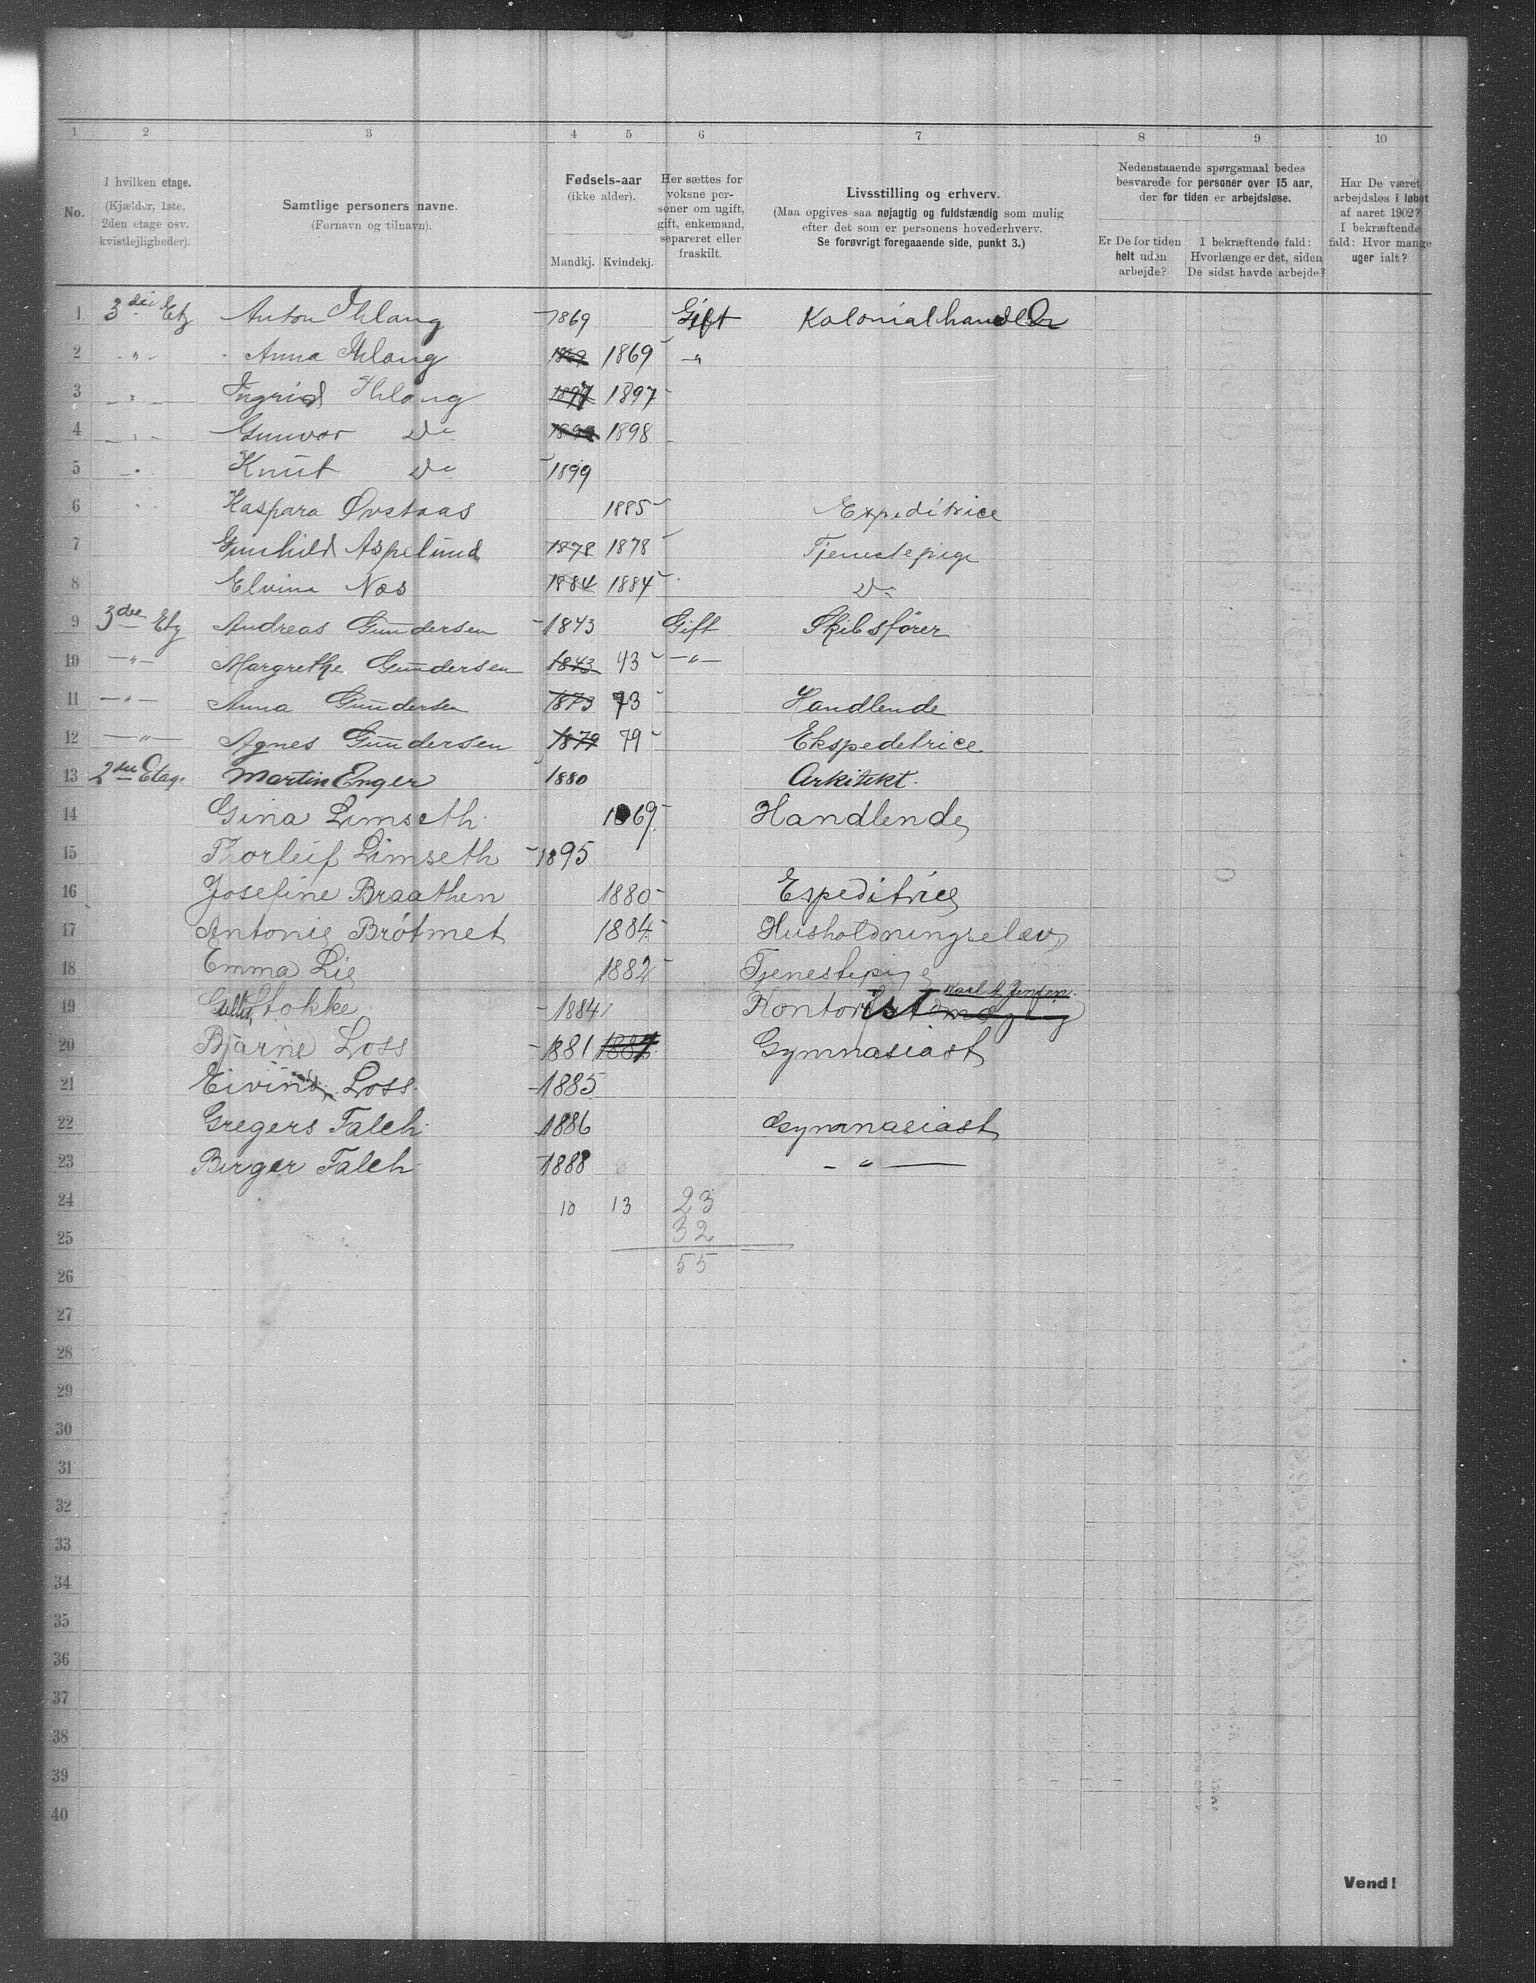 1 2 3 4 5 6 7 8 9 10
No.
I hvilken etage.
(Kjælder, 1ste,
2den etage osv.
kvistlejligheder).
Samtlige personers navne.
(Fornavn og tilnavn).
Fødsels-aar
(ikke alder).
Mandkj. Kvindekj.
Her sættes for
voksne per-
soner om ugift,
gift, enkemand,
separeret eller
fraskilt.
Livsstilling og erhverv.
(Maa opgives saa nøjagtig og fuldstændig som mulig
efter det som er personens hovederhverv.
Se forøvrigt foregaaende side, punkt 3.)
Nedenstaaende spørgsmaal bedes
besvarede for personer over 15 aar,
der for tiden er arbejdsløse.
Er De for tiden
helt uden
arbejde?
I bekræftende fald:
Hvorlænge er det, siden
De sidst havde arbejde?
Har De været
arbejdsløs i løbet
af aaret 1902?
I bekræftende
fald: Hvor mange
uger ialt?
1 3die Etg Anton Ihlang 1869 Gift Kolonialhandler
2 - " - Anna Ihlang 1869 1869 - "
3 - " - Ingrid Ihlang 1897 1897
4 - " - Gunvor Do 1898
5 - " - Knut Do 1899
6 " Kaspara Øvstaas 1885 Expeditrice
7 Gunhild Aspelund 1878 1878 Tjenestepige
8 Elvina Næs 1884 1884 Do
9 3die Etg Andreas Gundersen 1843 Gift Skibsfører
10 - " - Margrethe Gundersen 1843 43 - " -
11 - " - Anna Gundersen 1873 73 Handlende
12 - " - Agnes Gundersen 1879 79 Ekspedetrice
13 2den Etage Martin Enger 1880 Arkitekt.
14 Gina Limseth 1869 Handlende
15 Thorleif Limseth 1895
16 Josefine Braathen 1880 Espeditrice
17 Antonie Brøtmet 1884 Husholdningselev
18 Emma Lie 1882 Tjenestepige
19 Stokke 1884 Kontorist
20 Bjarne Loss 1881 Gymnasiast
21 Eivind Loss 1885
22 Gregers Falch 1886 Gymnasiast
23 Birger Falch 1888 - " -
24 10 13 23
32
25
55
26
27
28
29
30
31
32
33
34
35
36
37
38
39
40
Vend!